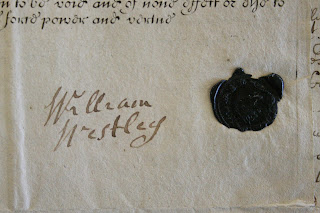 to be void and of none effect or else to
force power and vertue
William
Westley